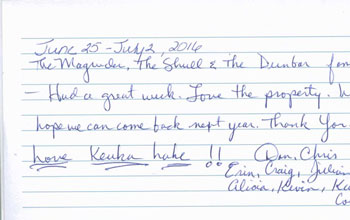 June 25 - July 2, 2016
The Magruder, The Shull & The Dunbar fam
- Had a great week. Love the property. W
hope we can come back next year. Thank You
Love Keuka Lake !! Don, Chris
Erin, Craig, Julian
Alicia, Kevin, Ka
Co